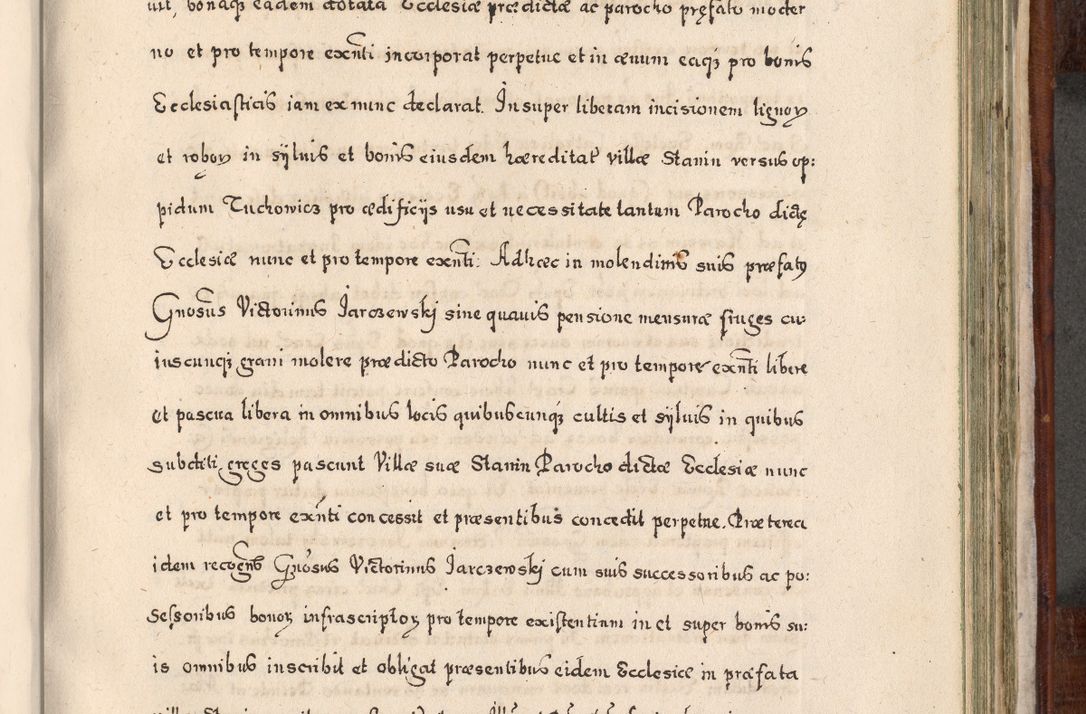 bonaq₃ eadem dotata Ecclesiæ prædictæ ac parocho pręfato moder
no et pro tempore exñti incorporat perpetue et in ævum eaq₃ pro bonis
Ecclesiasticis iam ex nunc declarat. Insuper liberam incisionem lignoꝝ
et roboꝝ in sÿluis et bonis eiusdem hæreditat villæ Stanin versus op:
pidum Tuchowicz pro ædificÿs usu et necessitate tantum Parocho dictę
Ecclesiæ nunc et pro tempore exñti: Adhæc in molendinis suis præfatꝰ
Gnosus Victorinus Jarczewskj sine quauis pensione mensuræ fruges cu:
iuscunq₃ grani molere prædicto Parocho nunc et pro tempore exñti libere
et pascua libera in omnibus locis quibuscunq₃ cultis et sÿluis in quibus
subditi greges pascunt Villæ suæ Stanin Parocho dictæ Ecclesiæ nunc
et pro tempore exñti concessit et præsentibus concedit perpetue. Præterea
idem recogñs Gnosus Victorinus Jarczewskj cum suis successoribus ac po:
sessoribus bonoꝝ infrascriptoꝝ pro tempore existentium in et super bonis su:
is omnibus inscribit et obligat præsentibus eidem Ecclesiæ in præfata